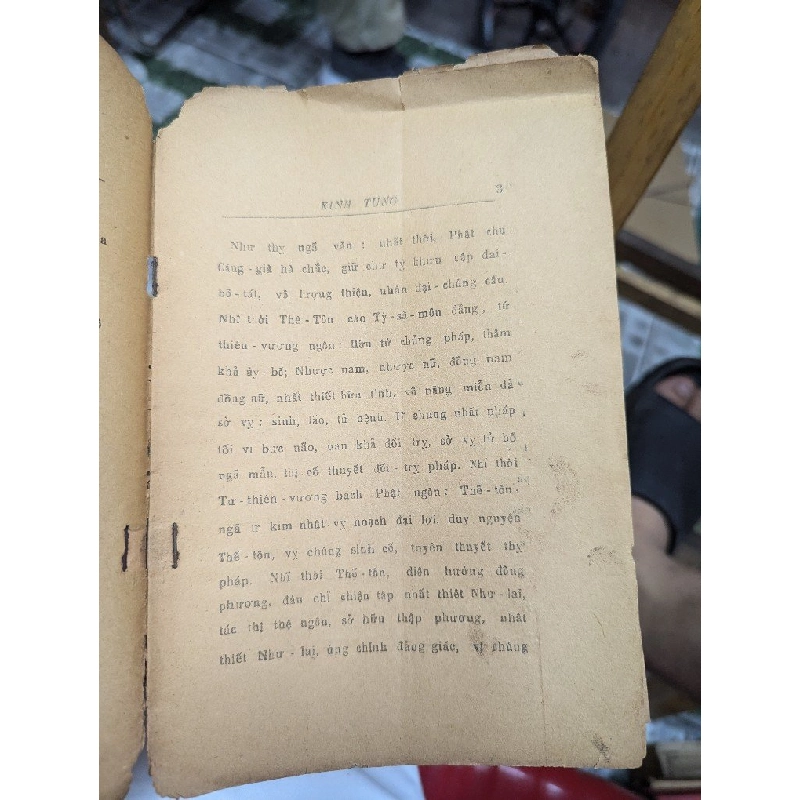 KINH TỤNG 3
Như thy ngã văn : nhất thời, Phật chu
Căng - già hà chắc, giữ chư tỷ khưu cập đại -
bồ - tát, vô lượng thiên, nhân đại - chúng câu.
Nhĩ thời Thế - Tôn cáo Tỳ - sa - môn đẳng, tứ
thiên - vương ngôn : Hữu tứ chủng pháp, thậm
khả úy bố; Nhược nam, nhược nữ, đồng nam
đồng nữ, nhất thiết hữu tình, vô năng miễn dả
sở vỵ : sinh, lão, tử bệnh. Ư chúng nhất pháp
tối vi bức não, nan khả đối trỵ, sở vỵ tử bố
ngã mẫn, thị cố thuyết đối - trỵ pháp. Nhĩ thời
Tứ - thiên - vương bạch Phật ngôn : Thế - tôn
ngã ư kim nhật vỵ hoạch đại lợi duy nguyện
Thế - tôn, vỵ chúng sinh cố, tuyên thuyết thỵ
pháp. Nhĩ thời Thế - tôn, diện hướng đông
phương, đàn chỉ chiệu tập nhất thiết Như - lai,
tác thị thệ ngôn, sở hữu thập phương, nhất
thiết Như - lai, ứng chính đẳng giác, vỵ chúng